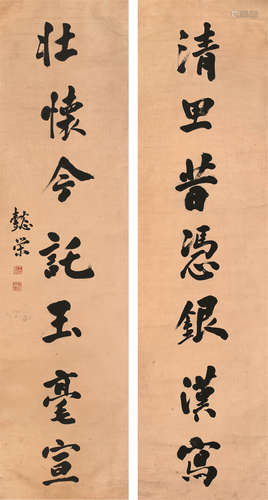 清思昔憑銀漢寫
壯懷今託玉毫宣
懿榮